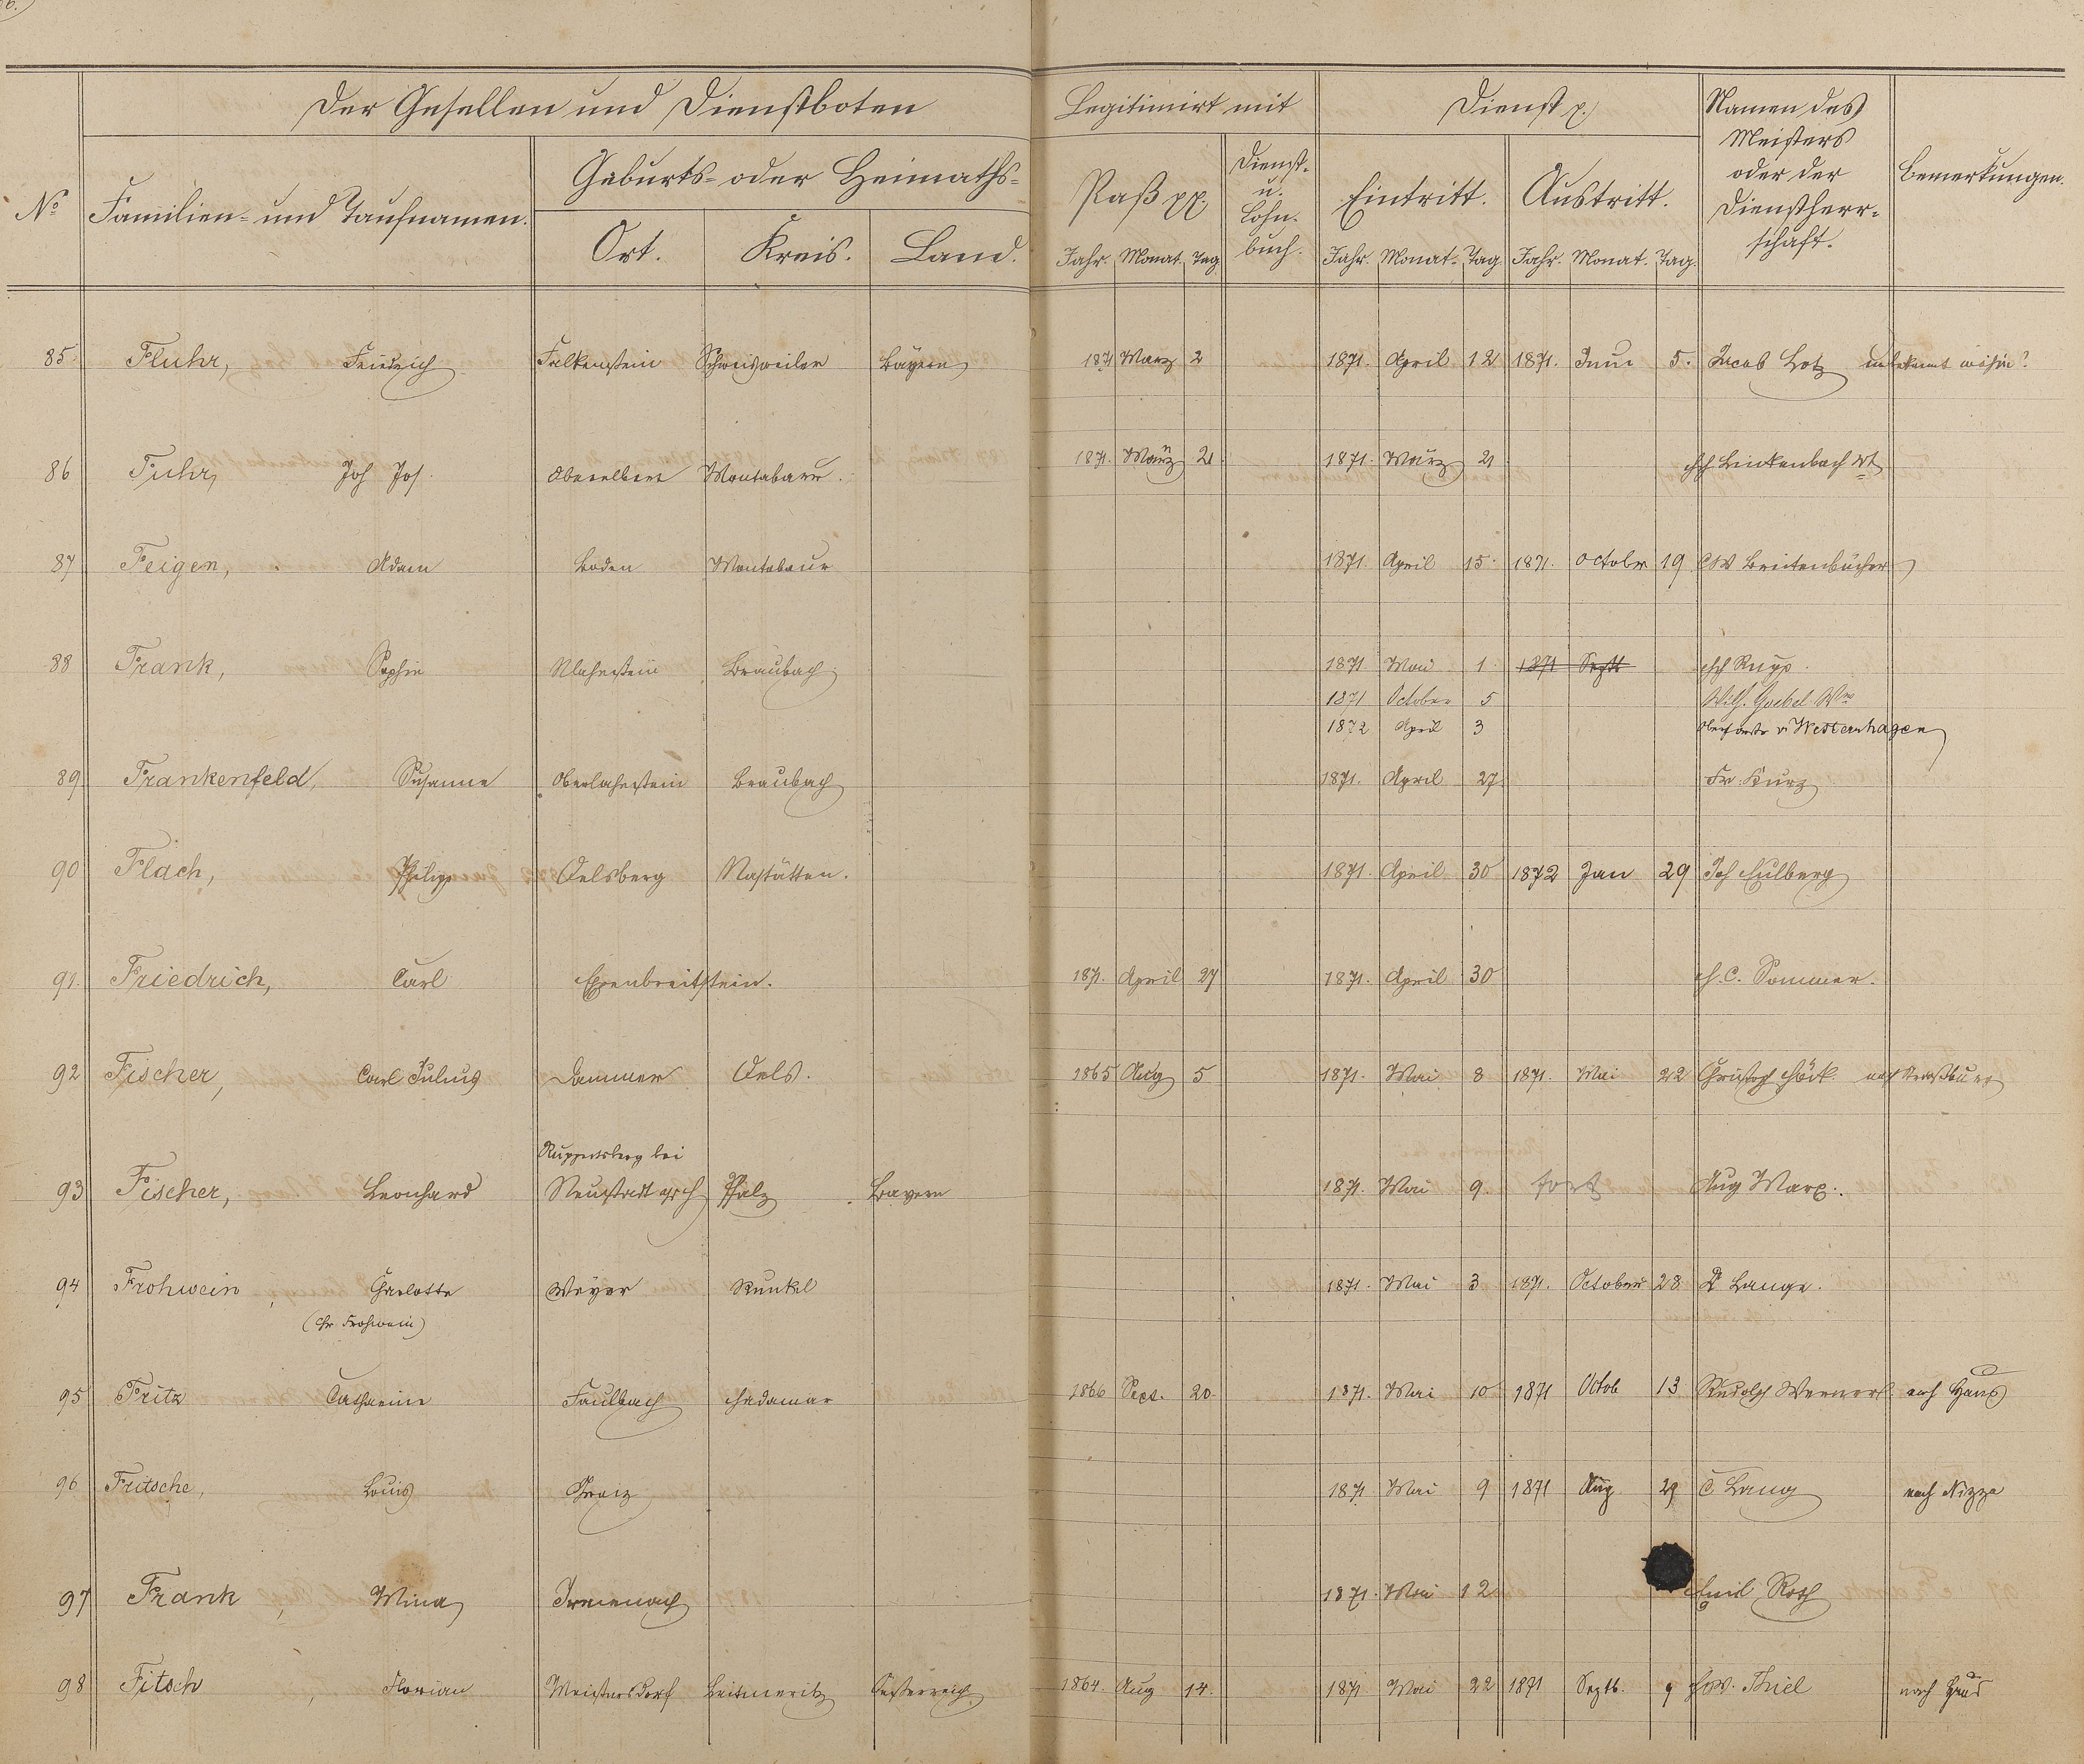 Der Gesellen und Dienstboten Legitimirt mit Dienst p. Namen des Meisters oder der Dienstherrschaft. Bemerkungen.
No Familien- und Taufnamen. Geburts- oder Heimaths- Paß pp. Dienst- u. Lohn- buch. Eintritt. Austritt.
Ort. Kreis. Land. Jahr. Monat. Tag Jahr. Monat. Tag Jahr. Monat. Tag.
85. Fluhr, Friedrich Falkenstein Schweisweiler Bayern 1871 März 2 1871. April 12 1871. Juni 5. Jacob Lotz unbekannt wohin?
86 Fuhr, Joh Jos. Oberelbert Montabaur. 1871. März 21 1871. März 21 Linkenbach
87 Feigen, Adam Boden Montabaur 1871. April 15. 1871. October 19 CW Breitenbücher
88 Frank, Sophie Nlahnstein Braubach 1871 Mai 1. 1871 Septb Hch Rupp.
1871 October 5 Wilh. Goebel Ww
1872 April 3 Oberförster v Westernhagen
89 Frankenfeld, Susanne Oberlahnstein Braubach 1871. April 27. Fr. Kurz
90 Flach, Philipp Oelsberg Nastätten. 1871. April 30 1872 Jan 29 Joh Eulberg
91. Friedrich, Carl Ehrenbreitstein. 1871. April 27 1871. April 30 H. C. Sommer.
92 Fischer, Carl Julius Dammer Oels. 1865 Aug 5 1871. Mai 8 1871. Mai 22 Christoph Höck. nach Strassburg
Ruppertsberg bei
93 Fischer, Leonhard Neustadt a/H Pfalz Bayern 1871. Mai 9. fort Aug Marx.
94 Frohwein, Charlotte Weyer Runkel 1871. Mai 3 1871. October 28 Lange.
(Chr Frohwein)
95 Fritz Catharine Faulbach Hadamar 1866 Sept. 20. 1871. Mai 10 1871 Octob 13 Rudolph Werner nach Haus
96 Fritsche, Louis Greiz 1871 Mai 9 1871 Aug 29 C Lang nach Nizza
97 Frank, Mina 1871. Mai 12 Emil Roth
98 Fitsch, Florian Leitmeritz Oesterreich 1864. Aug 14. 1871 Mai 22 1871 Septb. 9 Thiel nach Haus